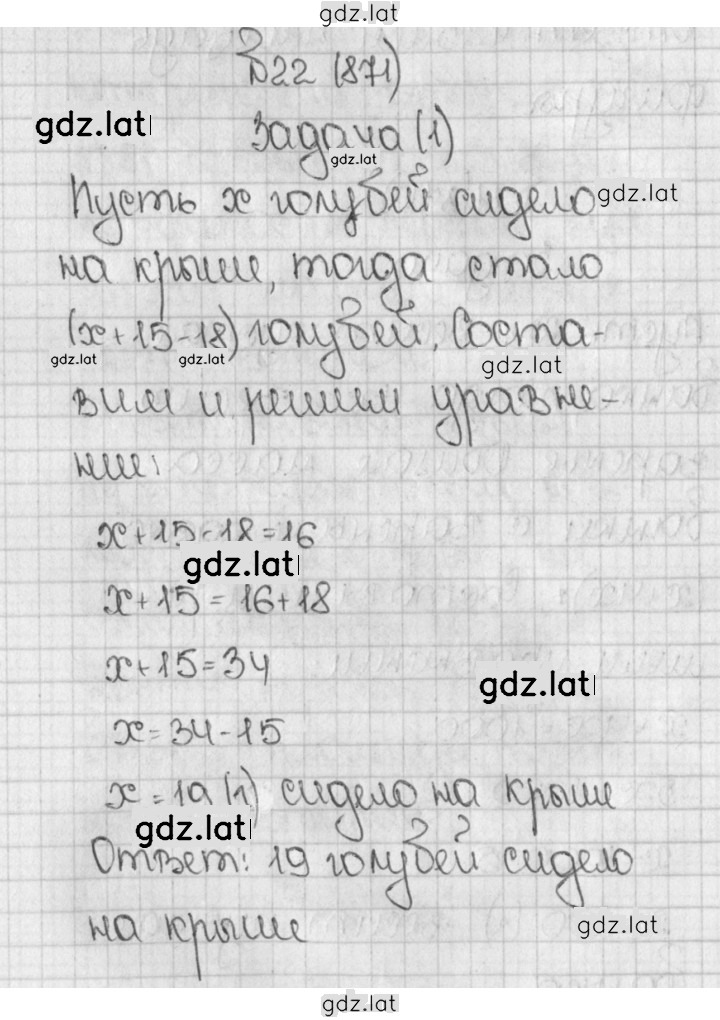 gdz.lat
№22 (871)
gdz.lat
Задача (1)
gdz.lat
Пусть x голубей сидело
gdz.lat
на крыше, тогда стало
(x+15-18) голубей. Соста-
gdz.lat gdz.lat gdz.lat
вим и решим уравне-
ние:
x+15-18=16
gdz.lat
x+15=16+18
x+15=34
gdz.lat
x=34-15
x=19 (1) сидело на крыше
gdz.lat
Ответ: 19 голубей сидело
на крыше
gdz.lat
gdz.lat